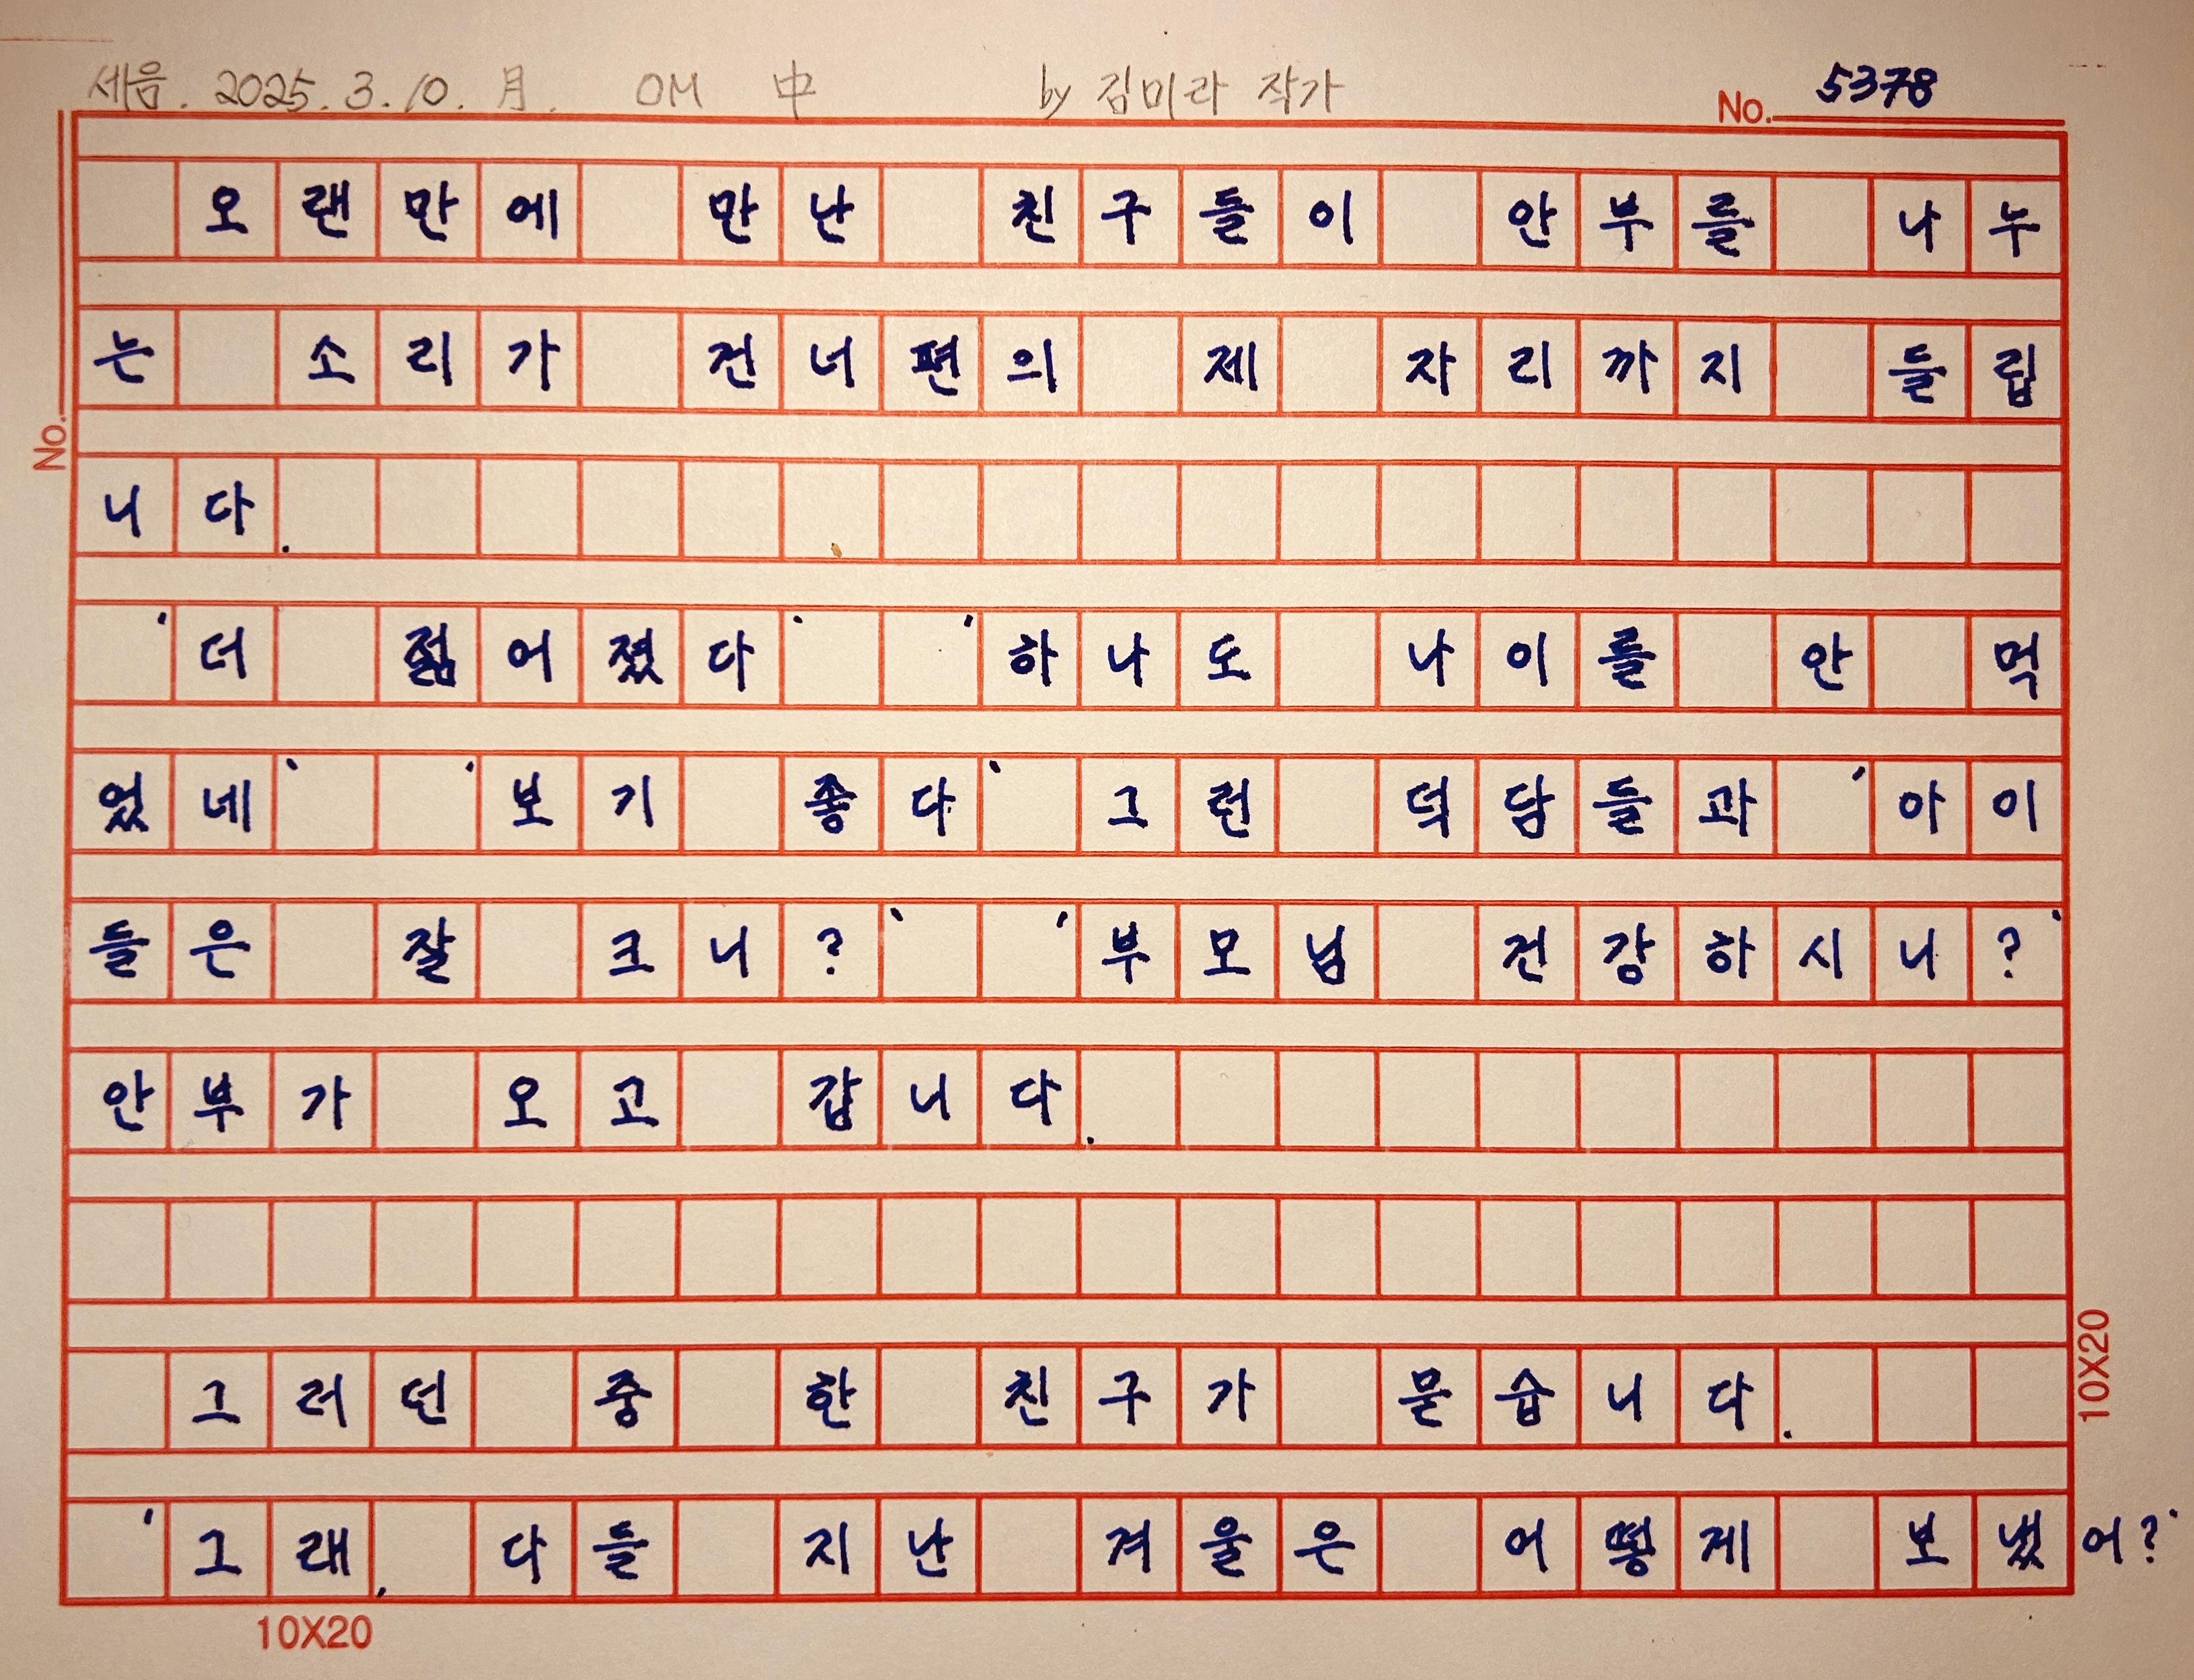 세음. 2025. 3. 10. 月. OM 中 by 김미라 작가
No. 5378
오랜만에 만난 친구들이 안부를 나누
는 소리가 건너편의 제 자리까지 들립
No.
니다.
'더 젊어졌다' '하나도 나이를 안 먹
었네' '보기 좋다' 그런 덕담들과 '아이
들은 잘 크니?' '부모님 건강하시니?'
안부가 오고 갑니다.
그러던 중 한 친구가 묻습니다.
10X20
'그래, 다들 지난 겨울은 어떻게 보냈어?'
10X20